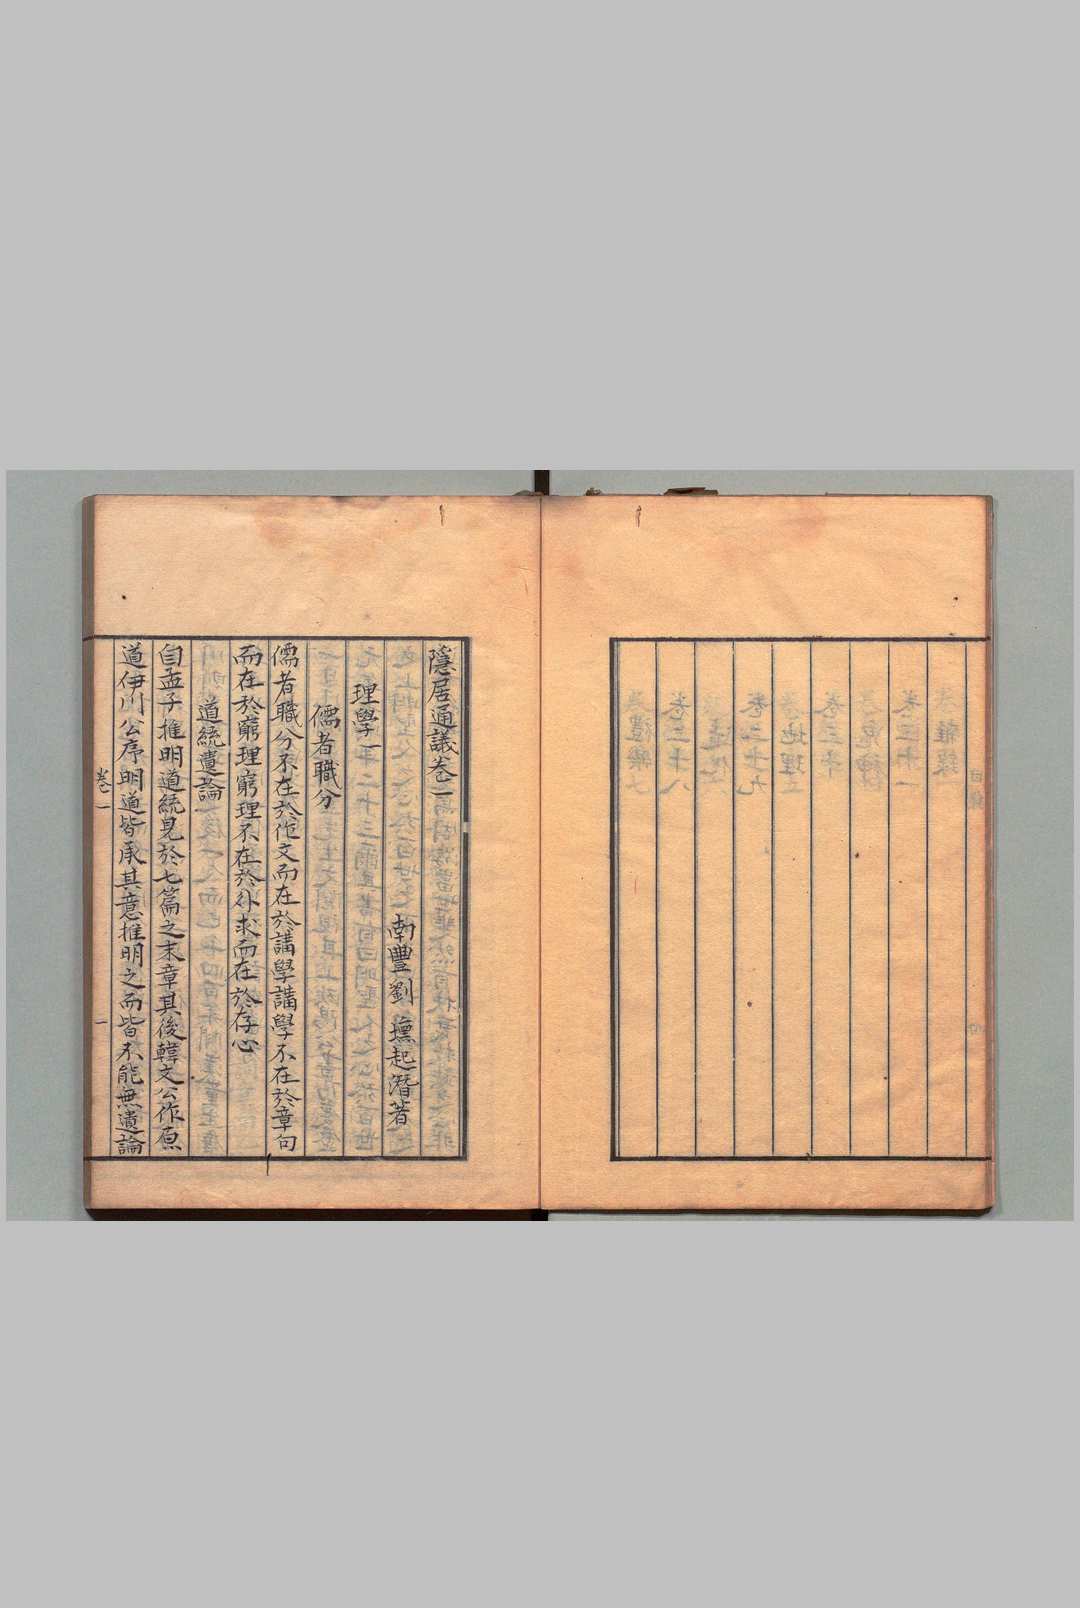 隱居通議卷一
南豐劉　壎起潛著
理學一
儒者職分
儒者職分不在於作文而在於講學講學不在於章句
而在於窮理窮理不在於外求而在於存心
道統遺論
自孟子推明道統見於七篇之末章其後韓文公作原
道伊川公序明道皆承其意推明之而皆不能無遺論
卷一
一